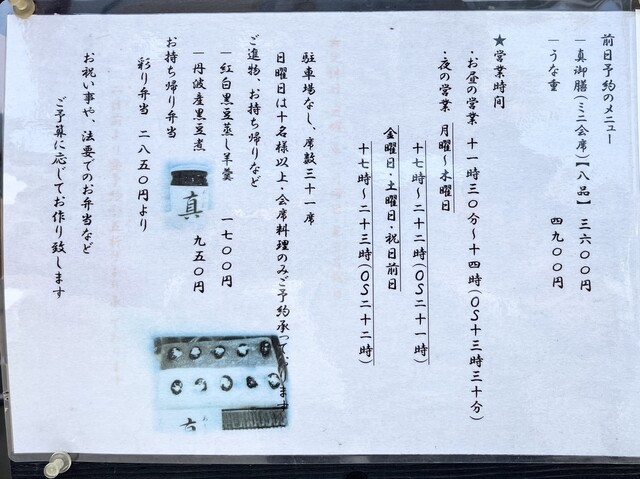 前日予約のメニュー
ー真御膳(ミニ会席)【八品】 三六〇〇円
ーうな重 四九〇〇円
★営業時間
・お昼の営業 十一時三〇分～十四時(OS十三時三十分)
・夜の営業 月曜～木曜日
十七時～二十二時(OS二十一時)
金曜日・土曜日・祝日前日
十七時～二十三時(OS二十二時)
駐車場なし、席数三十一席
日曜日は十名様以上・会席料理のみご予約承っております
ご進物、お持ち帰りなど
ー紅白黒豆蒸し羊羹 一七〇〇円
ー丹波産黒豆煮 九五〇円
お持ち帰り弁当
彩り弁当 二八五〇円より
お祝い事や、法要でのお弁当など
ご予算に応じてお作り致します
真
真